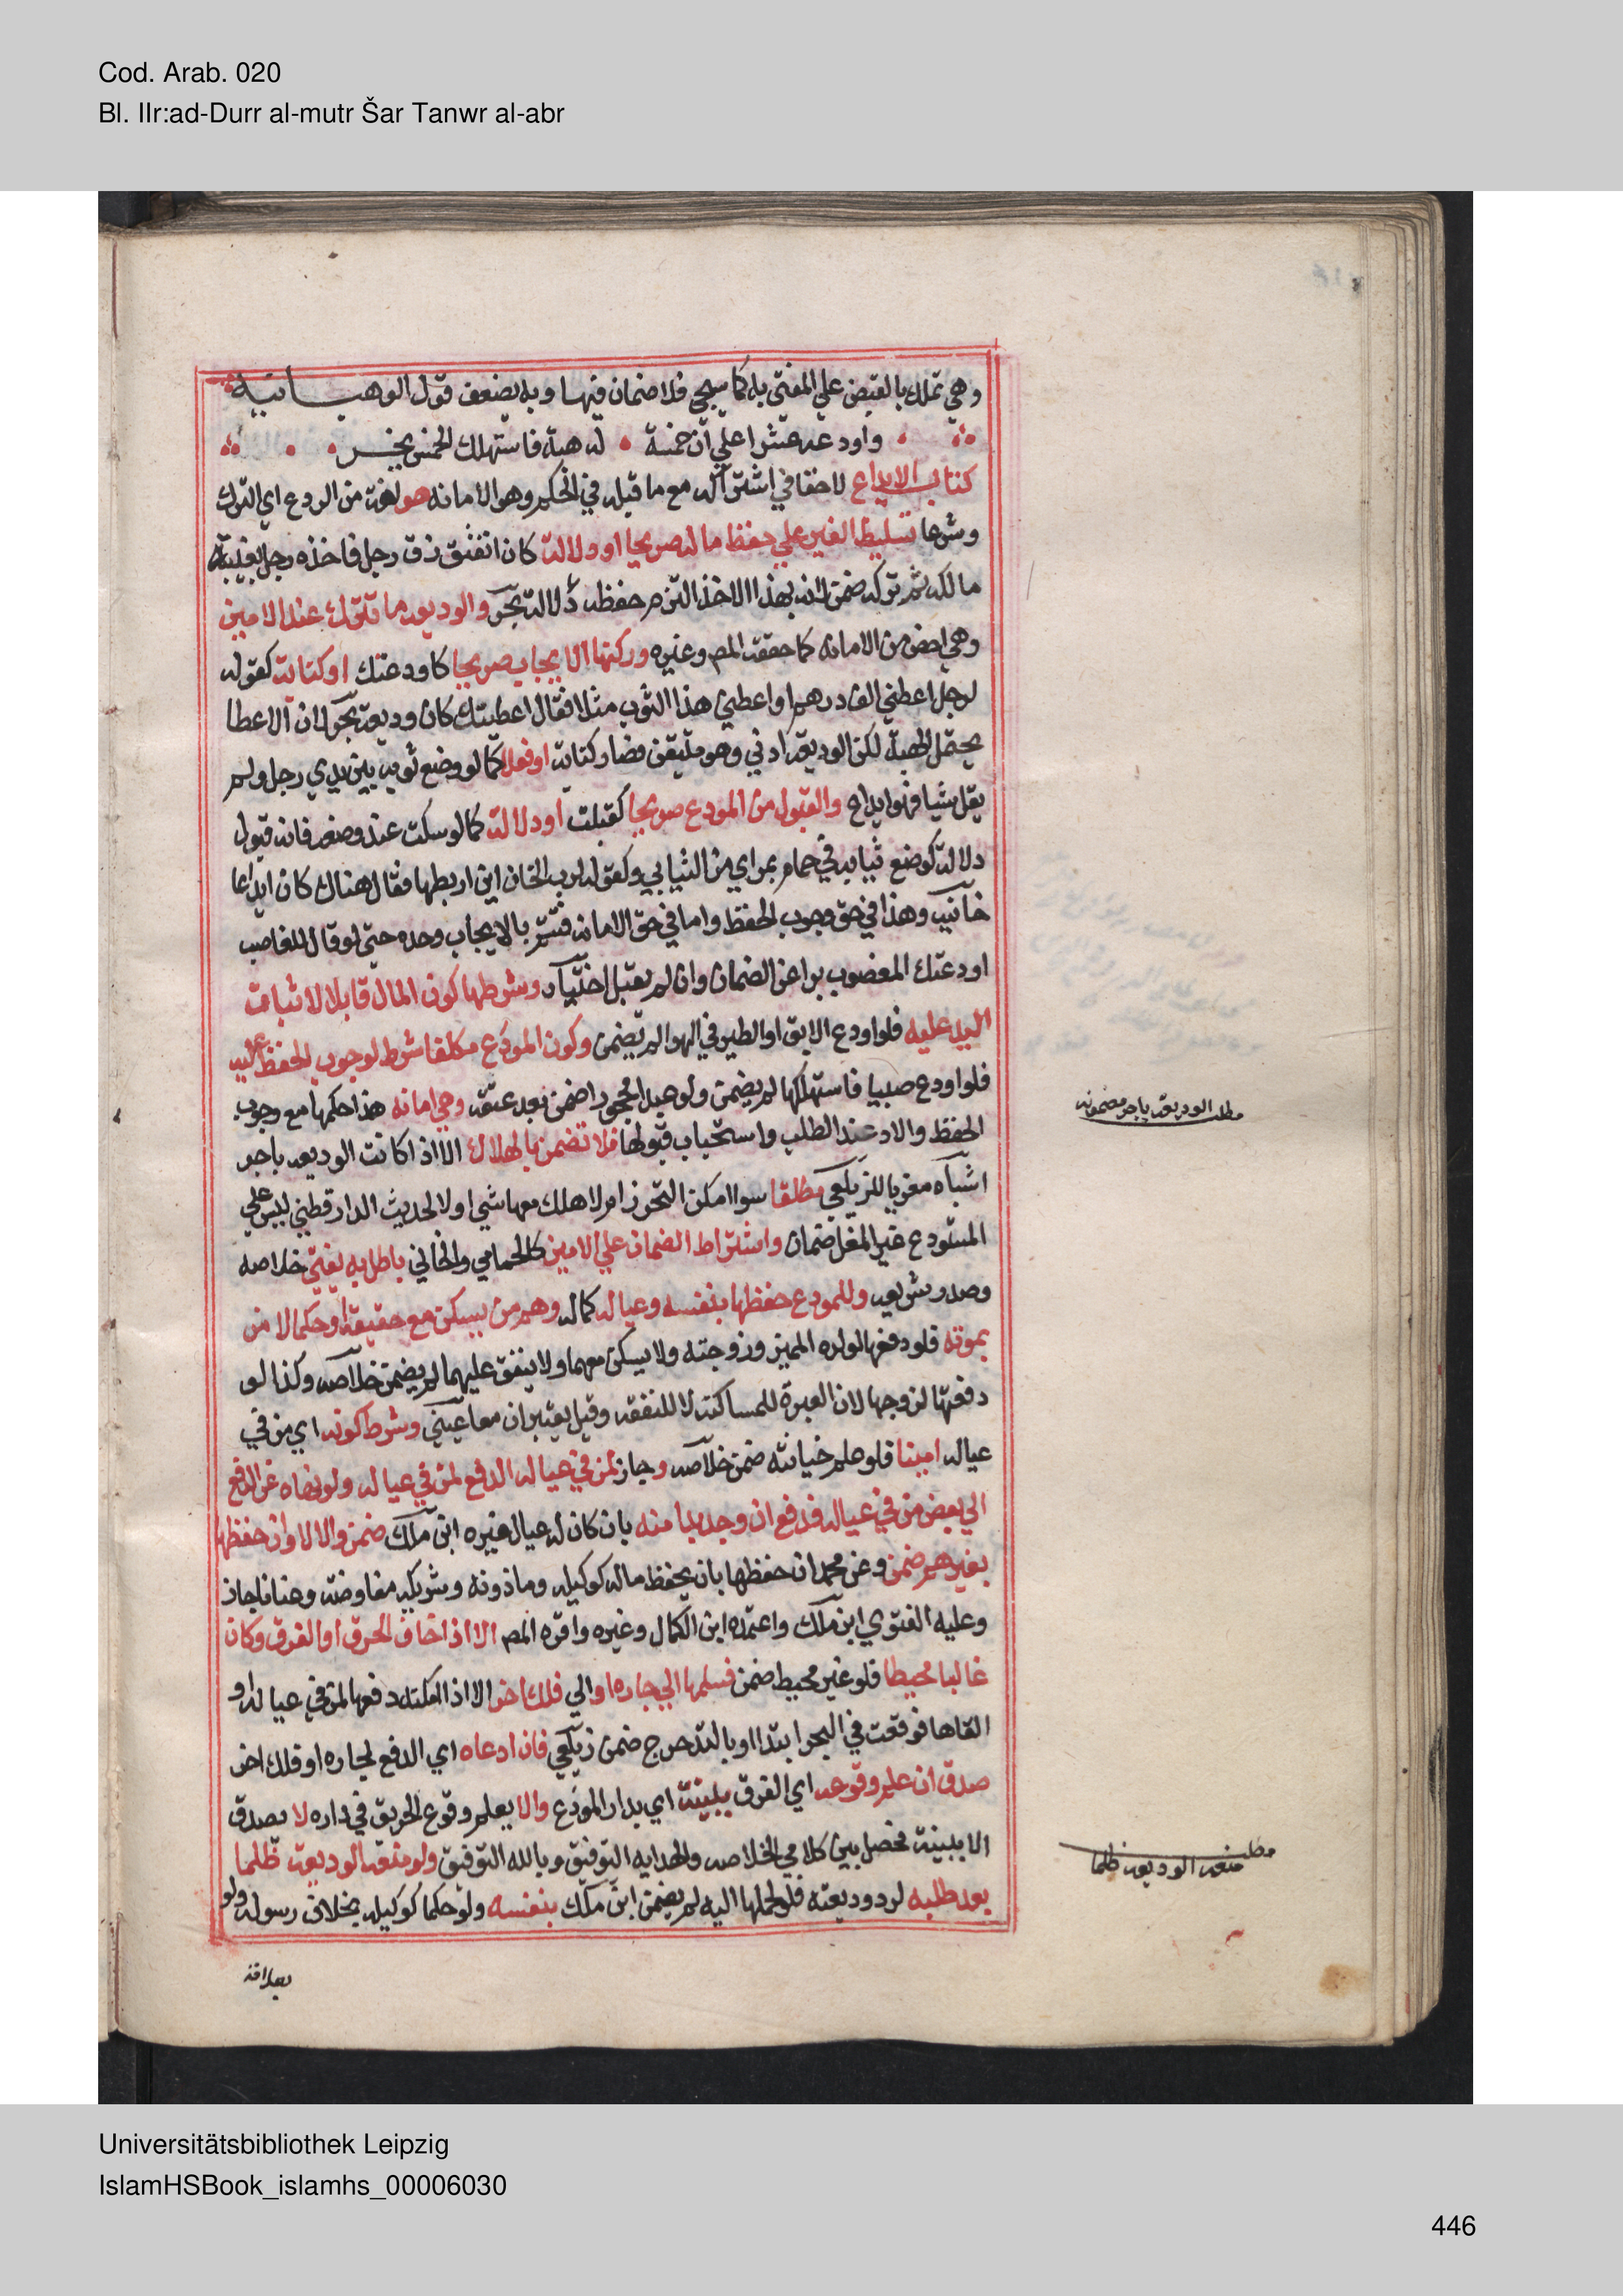 Cod. Arab. 020
Bl. IIr:ad-Durr al-mutr Šar Tanwr al-abr
وهي تملك بالقبض علي المفتي به كما سيجي فلا ضمان فيها وبه يضعف قول الوهبانية
واودعه عشرا علي ان خمسة له هبة فاستهلك الخمس يخسر
كتاب الايداع لا خفا في اشتراكه مع ما قبله في الحكم وهو الامانه هو لغة من الودع اي الترك
وشرعا تسليط الغير علي حفظ ماله صريحا او دلالة كان انفتق زق رجل فاخذه رجل بغيبة
مالكه ثم تركه ضمن لانه بهذا الاخذ التزم حفظه دلالة بحر والوديعه ما تترك عند الامين
وهي اخص من الامانه كما حققه المص وغيره وركنها الايجاب صريحا كاودعتك او كناية كقوله
لرجل اعطني الف درهم او اعطني هذا الثوب مثلا فقال اعطيتك كان وديعة بحر لان الاعطا
يحتمل الهبة لكن الوديعة ادني وهو متيقن فصار كناية او فعلا كما لو وضع ثوبه بين يدي رجل ولم
يقل شيا فهو ايداع والقبول من المودع صريحا كقبلت او دلالة كما لو سكت عند وضعه فانه قبول
دلالة كوضع ثيابه في حمام بمراي من الثيابي وكقوله لرب الخان اين اربطها فقال هناك كان ايداعا
خانية وهذا في حق وجوب الحفظ واما في حق الامانه فتتم بالايجاب وحده حتي لو قال للغاصب
اودعتك المغصوب برا عن الضمان وان لم يقبل اختيار وشرطها كون المال قابلا لاثبات
اليد عليه فلو اودع الابق او الطير في الهوا لم يضمن وكون المودع مكلفا شرط لوجوب الحفظ عليه
فلو اودع صبيا فاستهلكها لم يضمن ولو عبدا محجورا ضمن بعد عتقه وهي امانه هذا حكمها مع وجوب
الحفظ والادا عند الطلب واستحباب قبولها فلا تضمن بالهلاك الا اذا كانت الوديعه باجر
اشباه معزيا للزيلعي مطلقا سوا امكن التحرز ام لا هلك معها شي او لا لحديث الدارقطني ليس علي
المستودع غير المغل ضمان واشتراط الضمان علي الامين كالحمامي والخاني باطل به يفتي خلاصه
وصدر وشريعه وللمودع حفظها بنفسه وعياله كماله وهم من يسكن معه حقيقة او حكما لا من
يمونه فلو دفعها لولده المميز وزوجته ولا يسكن معهما ولا ينفق عليهما لم يضمن خلاصه وكذا لو
دفعتها لزوجها لان العبرة للمساكنة لا للنفقه وقيل يعتبران معا عيني وشرط كونه اي من في
عياله امينا فلو علم خيانته ضمن خلاصه وجاز لمن في عياله الدفع لمن في عياله ولو نهاه عن الدفع
الي بعض من في عياله فدفع ان وجد بدا منه بان كان له عيال غيره ابن ملك ضمن والا لا وان حفظها
بغيرهم ضمن وعن محمد ان حفظها بان يحفظ ماله كوكيله وماذونه وشريكه مفاوضة وعنانا جاز
وعليه الفتوي ابن ملك واعتمده ابن الكمال وغيره واقره المص الا اذا خاف الحرق او الغرق وكان
غالبا محيطا فلو غير محيط ضمن فسلمها الي جاره او الي فلك اخر الا اذا امكنه دفعها لمن في عياله او
القاها فوقعت في البحر ابتدا او بالتدحرج ضمن زيلعي فان ادعاه اي الدفع لجاره او فلك اخر
صدق ان علم وقوعه اي الغرق ببينة اي بدار المودع والا يعلم وقوع الحريق في داره لا يصدق
الا ببينة فحصل بين كلامي الخلاصه والهدايه التوفيق وبالله التوفيق ولو منعه الوديعة ظلما
بعد طلبه لرد وديعته فلو لحملها اليه لم يضمن ابن ملك بنفسه ولو حكما كوكيله بخلاف رسوله ولو
مطلب الوديعه باجر مضمونه
مطلب منعه الوديعه ظلما
Universitätsbibliothek Leipzig
IslamHSBook_islamhs_00006030
446